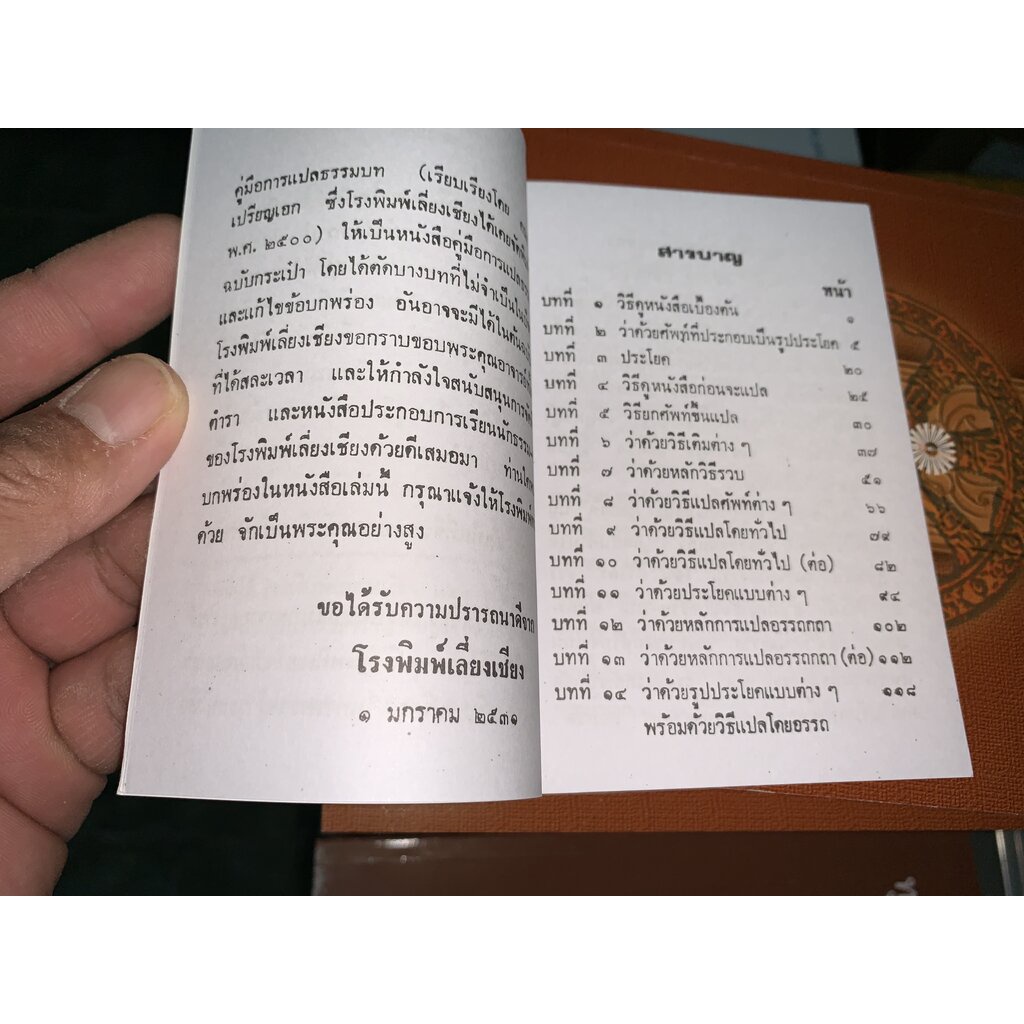 คู่มือการแปลธรรมบท (เรียบเรียงโดย
เปรียญเอก ซึ่งโรงพิมพ์เลี่ยงเชียงได้เคยจัด
พ.ศ. ๒๕๐๐) ให้เป็นหนังสือคู่มือการแปล
ฉบับกระเป๋า โดยได้ตัดบางบทที่ไม่จำเป็น
และแก้ไขข้อบกพร่อง อันอาจจะมีได้ใน
โรงพิมพ์เลี่ยงเชียงขอกราบขอบพระคุณอาจารย์
ที่ได้สละเวลา และให้กำลังใจสนับสนุนการ
ตำรา และหนังสือประกอบการเรียนนักธรรม
ของโรงพิมพ์เลี่ยงเชียงด้วยดีเสมอมา ท่าน
บกพร่องในหนังสือเล่มนี้ กรุณาแจ้งให้โรงพิมพ์
ด้วย จักเป็นพระคุณอย่างสูง
ขอได้รับความปรารถนาดีจาก
โรงพิมพ์เลี่ยงเชียง
๑ มกราคม ๒๕๓๑
สารบาญ
หน้า
บทที่ ๑ วิธีดูหนังสือเบื้องต้น ๑
บทที่ ๒ ว่าด้วยศัพท์ที่ประกอบเป็นรูปประโยค ๕
บทที่ ๓ ประโยค ๒๐
บทที่ ๔ วิธีดูหนังสือก่อนจะแปล ๒๕
บทที่ ๕ วิธียกศัพท์ขึ้นแปล ๓๐
บทที่ ๖ ว่าด้วยวิธีเติมต่าง ๆ ๓๗
บทที่ ๗ ว่าด้วยหลักวิธีรวบ ๕๑
บทที่ ๘ ว่าด้วยวิธีแปลศัพท์ต่าง ๆ ๖๖
บทที่ ๙ ว่าด้วยวิธีแปลโดยทั่วไป ๗๙
บทที่ ๑๐ ว่าด้วยวิธีแปลโดยทั่วไป (ต่อ) ๘๒
บทที่ ๑๑ ว่าด้วยประโยคแบบต่าง ๆ ๙๔
บทที่ ๑๒ ว่าด้วยหลักการแปลอรรถกถา ๑๐๒
บทที่ ๑๓ ว่าด้วยหลักการแปลอรรถกถา (ต่อ) ๑๑๒
บทที่ ๑๔ ว่าด้วยรูปประโยคแบบต่าง ๆ ๑๑๘
พร้อมด้วยวิธีแปลโดยอรรถ